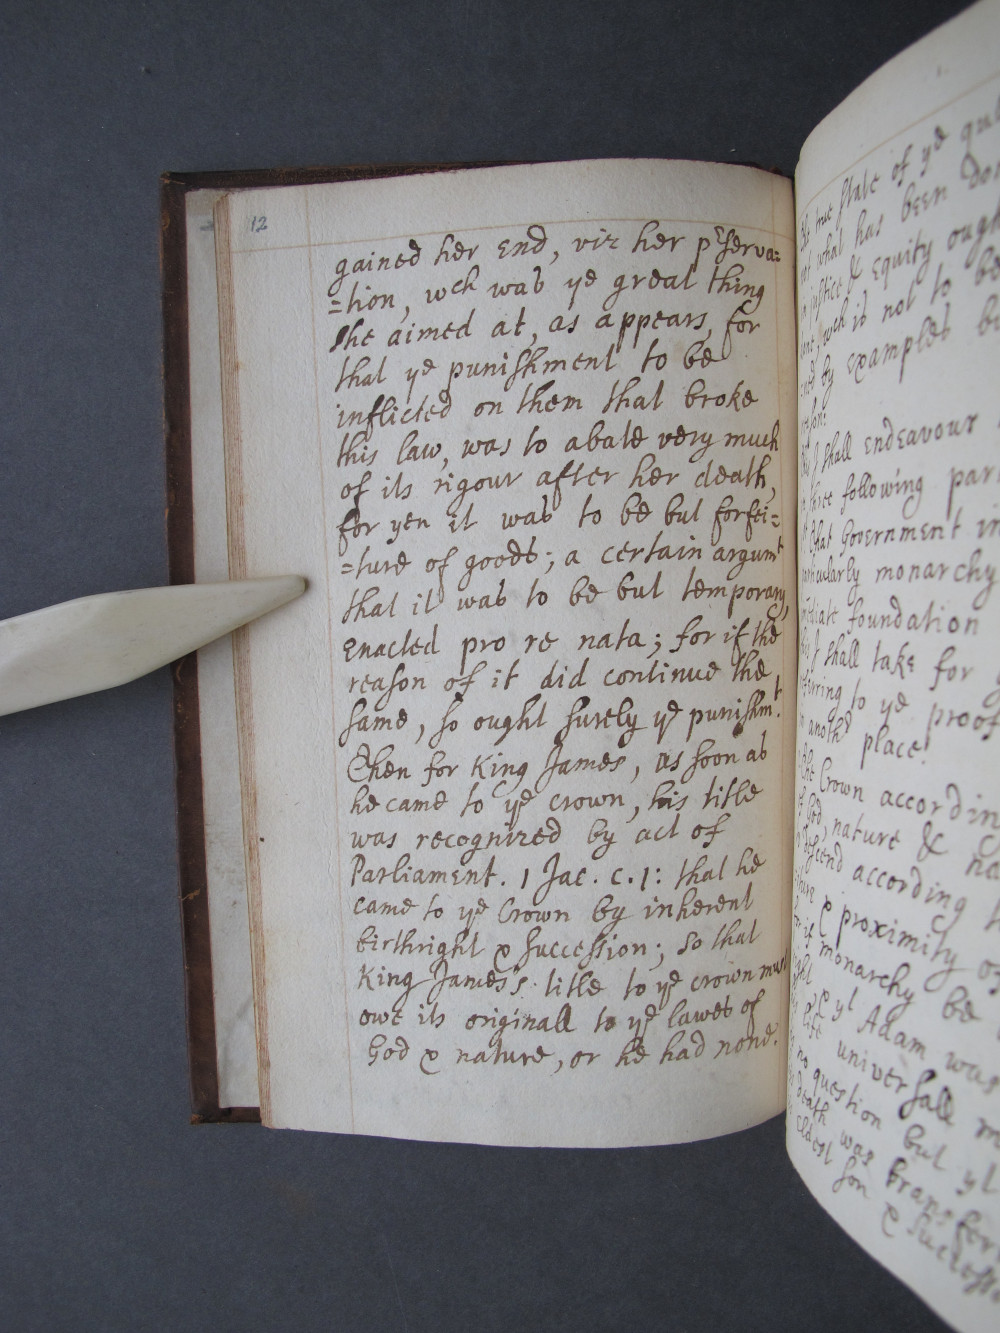 12
gained her End, viz her pʳserva=
=tion, wch was ye great thing
she aimed at, as appears, for
that ye punishment to be
inflicted on them that broke
this law, was to abate very much
of its rigour after her death,
for yen it was to be but forfei=
=ture of goods; a certain argumt
that it was to be but temporary,
Enacted pro re nata; for if the
reason of it did continue the
same, so ought surely ye punishmt.
Then for King James, as soon as
he came to ye crown, his title
was recognized by act of
Parliament. 1 Jac. c. 1: that he
came to ye Crown by inherent
birthright & succession; so that
King James's title to ye crown must
owe its originall to ye lawes of
God & nature, or he had none.
true state of ye
what has been don
justice & Equity ough
wch is not to be
by examples
I shall endeavour
three following par
that Government in
particularly monarchy
foundation
I shall take for
to ye proof
place.
the Crown accordin
God, nature &
descend according
& proximity of
if monarchy be
& yt Adam was
universall m
no question but yt
death was transfer
eldest son & successo